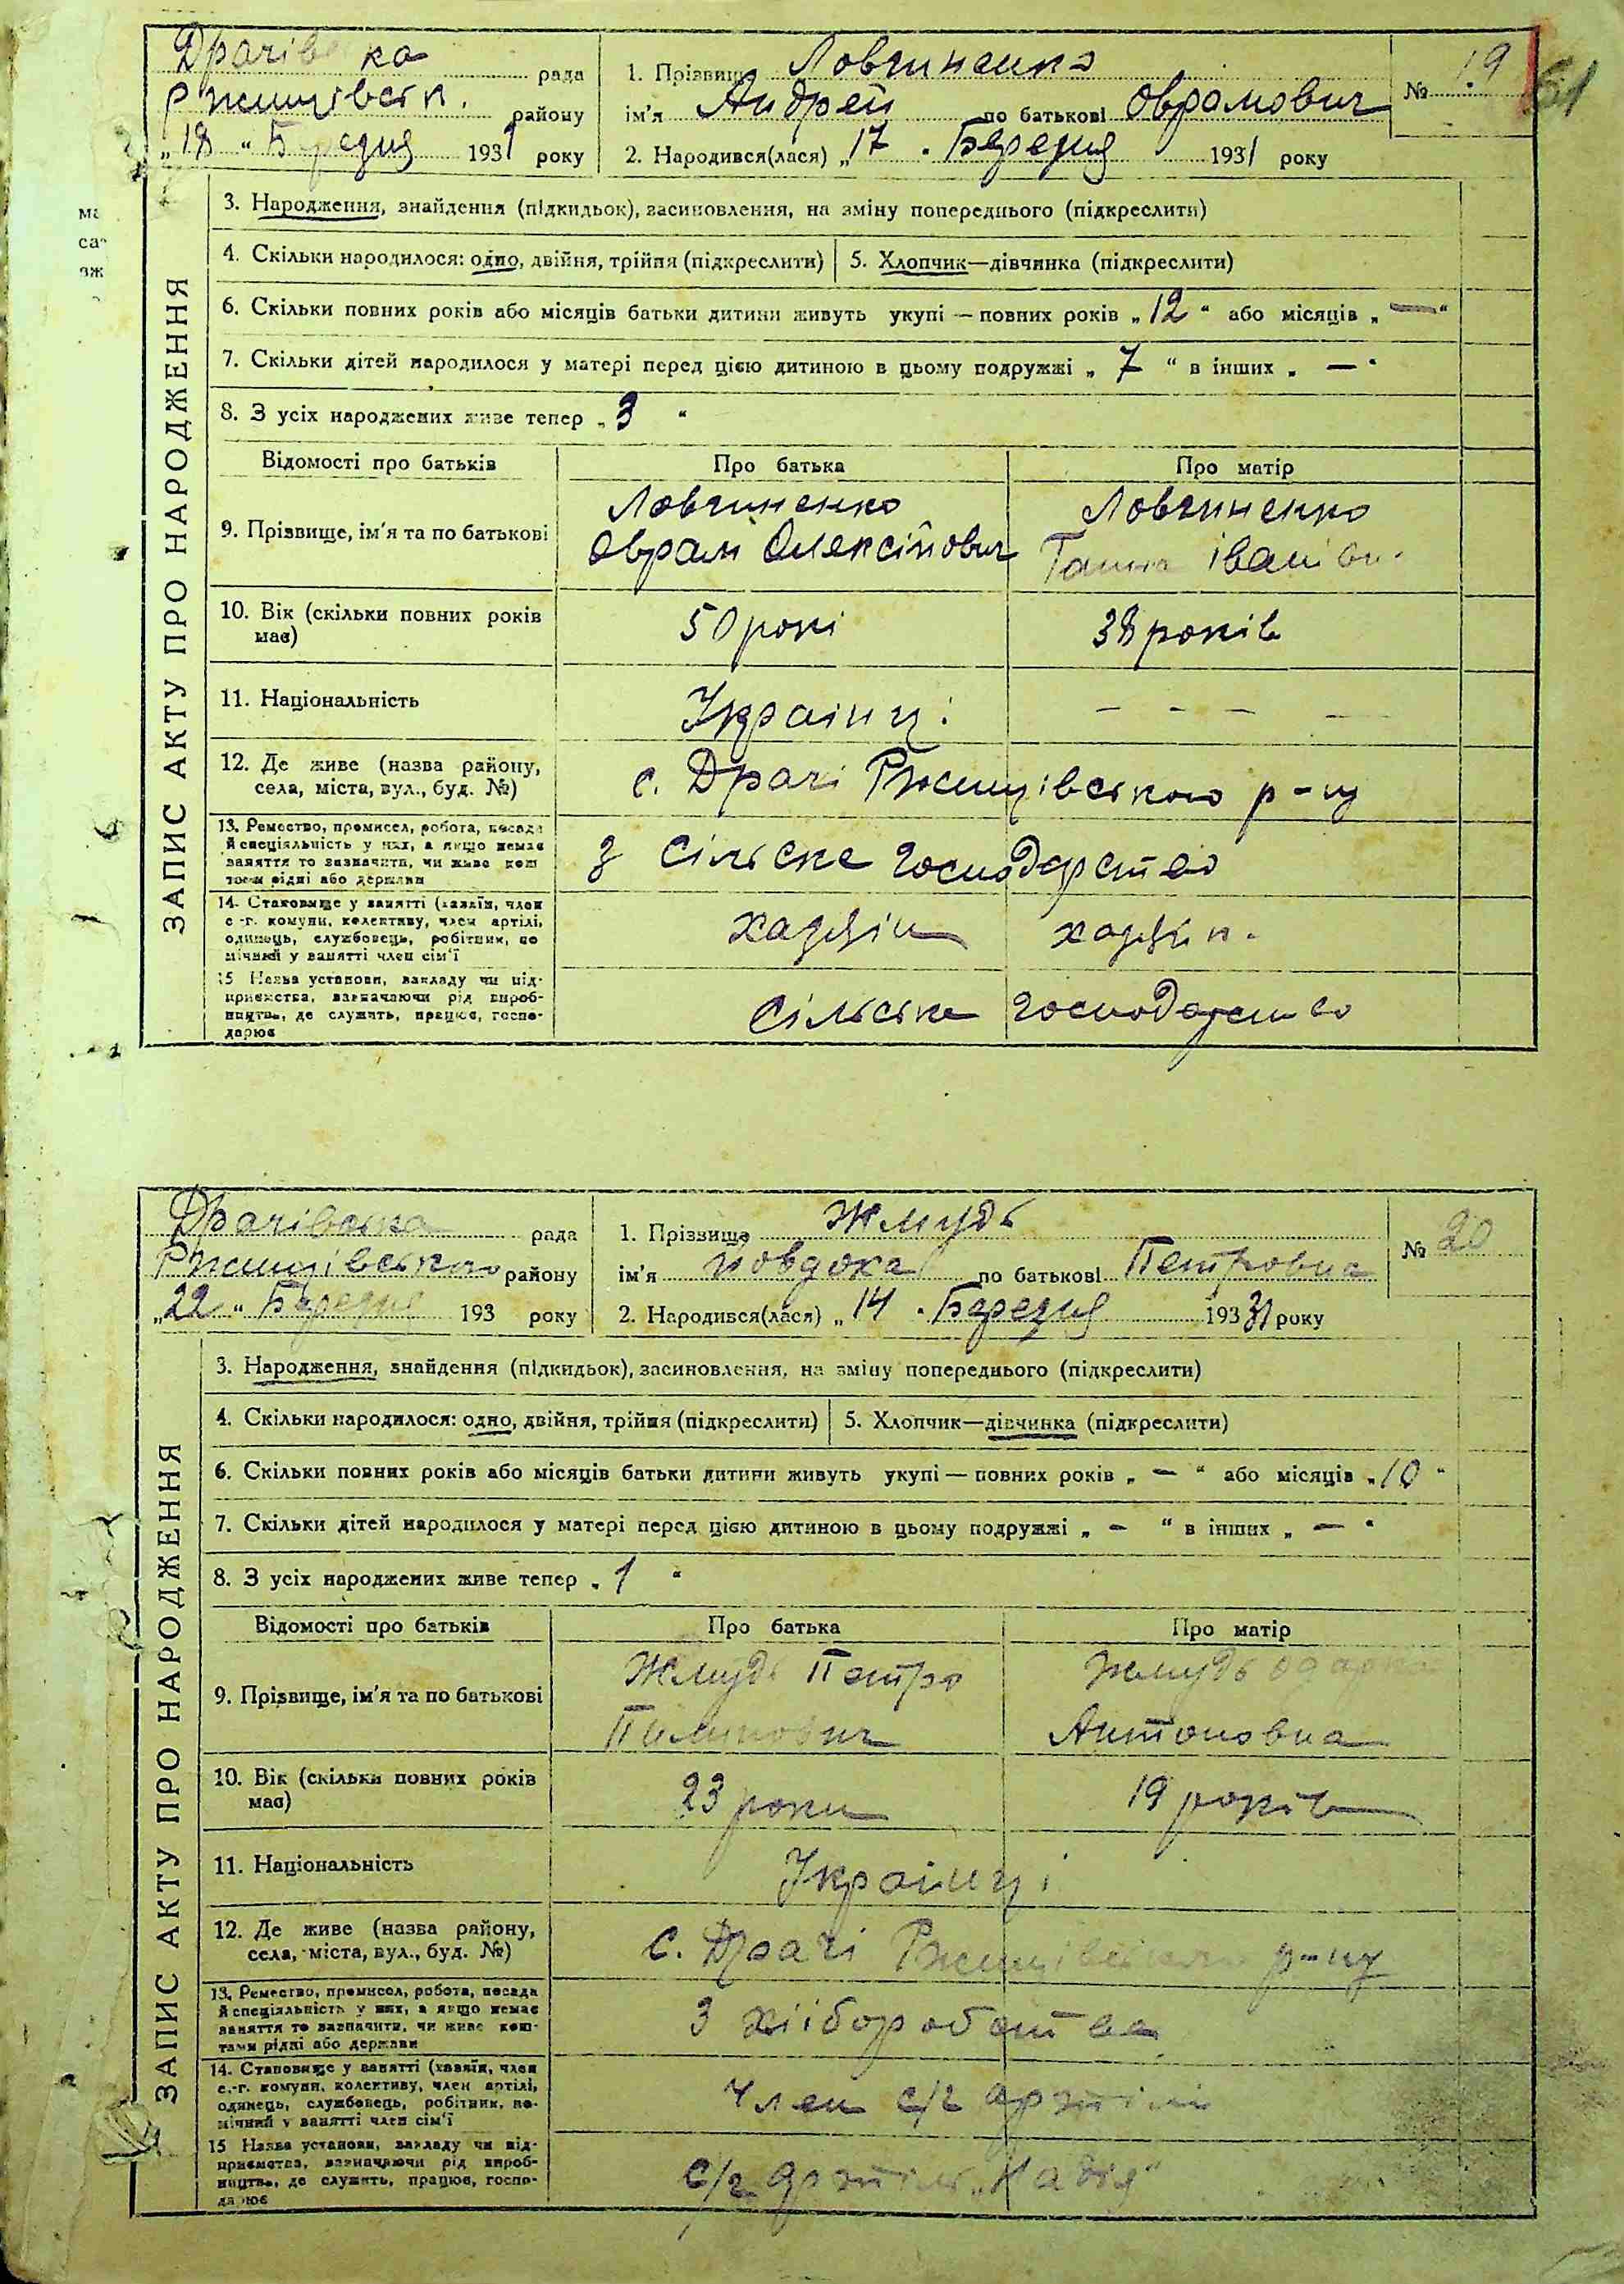 Драчівська рада
Ржищівськ. району
„18“ Березня 1931 року
1. Прізвище Ловчиненко
ім'я Андрей по батькові Оврамович
№ 19
61
2. Народився(лася) „17 „ Березня 1931 року
ЗАПИС АКТУ ПРО НАРОДЖЕННЯ
3. Народження, знайдення (підкидьок), засиновлення, на зміну попереднього (підкреслити)
4. Скільки народилося: одно, двійня, трійня (підкреслити) 5. Хлопчик—дівчинка (підкреслити)
6. Скільки повних років або місяців батьки дитини живуть укупі — повних років „12“ або місяців „—“
7. Скільки дітей народилося у матері перед цією дитиною в цьому подружжі „ 7 “ в інших „ — “
8. З усіх народжених живе тепер „ 3 “
Відомості про батьків Про батька Про матір
9. Прізвище, ім'я та по батькові
Ловчиненко Ловчиненко
Оврам Олексійович Ганна Іванівн.
10. Вік (скільки повних років має)
50 рокі 38 років
11. Національність Українці
12. Де живе (назва району, села, міста, вул., буд. №)
с. Драчі Ржищівського р-ну
13. Ремество, промисел, робота, посада
й спеціяльність у них, а якщо немає
заняття то зазначити, чи живе кош
тами рідні або держави
З сільське господарство
14. Становище у занятті (хазяїн, член
с-г. комуни, колективу, член артілі,
одинець, службовець, робітник, по
мічний у занятті член сім'ї
хазяїн хазяїн.
15 Назва установи, закладу чи під-
приємства, зазначаючи рід вироб-
ництва, де служить, працює, госпо-
дарює
Сільське господарство
Драчівська рада
Ржищівського району
„22“ Березня 193 року
1. Прізвище Жмудь
ім'я Йовдоха по батькові Петровна
№ 20
2. Народився(лася) „14 „ Березня 19331 року
ЗАПИС АКТУ ПРО НАРОДЖЕННЯ
3. Народження, знайдення (підкидьок), засиновлення, на зміну попереднього (підкреслити)
4. Скільки народилося: одно, двійня, трійня (підкреслити) 5. Хлопчик—дівчинка (підкреслити)
6. Скільки повних років або місяців батьки дитини живуть укупі — повних років „ — “ або місяців „10“
7. Скільки дітей народилося у матері перед цією дитиною в цьому подружжі „ — “ в інших „ — “
8. З усіх народжених живе тепер „ 1 “
Відомості про батьків Про батька Про матір
9. Прізвище, ім'я та по батькові
Жмудь Петро Жмудь Одарка
Антоновна
10. Вік (скільки повних років має)
23 роки 19 років
11. Національність Українці
12. Де живе (назва району, села, міста, вул., буд. №)
с. Драчі Ржищівського р-ну
13. Ремество, промисел, робота, посада
й спеціяльність у них, а якщо немає
заняття то зазначити, чи живе кош-
тами рідні або держави
З хліборобства
14. Становище у занятті (хазяїн, член
с.-г. комуни, колективу, член артілі,
одинець, службовець, робітник, по-
мічний у занятті член сім'ї
Член с/г артілі
15 Назва установи, закладу чи під-
приємства, зазначаючи рід вироб-
ництва, де служить, працює, госпо-
дарює
С/г артіль